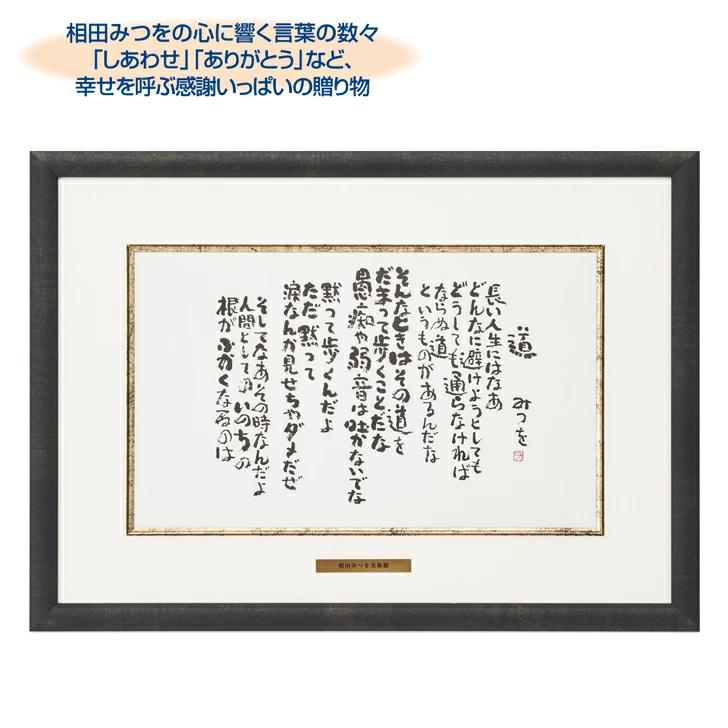 相田みつをの心に響く言葉の数々
「しあわせ」「ありがとう」など、
幸せを呼ぶ感謝いっぱいの贈り物
道
みつを
長い人生にはなあ
どんなに避けようとしても
どうしても通らなければ
ならぬ道
というものがあるんだな
そんなときはその道を
だまって歩くことだな
愚痴や弱音は吐かないでな
黙って歩くんだよ
ただ黙って
涙なんか見せちゃダメだぜ
そしてなあその時なんだよ
人間としてのいのちの
根がふかくなるのは
相田みつを美術館